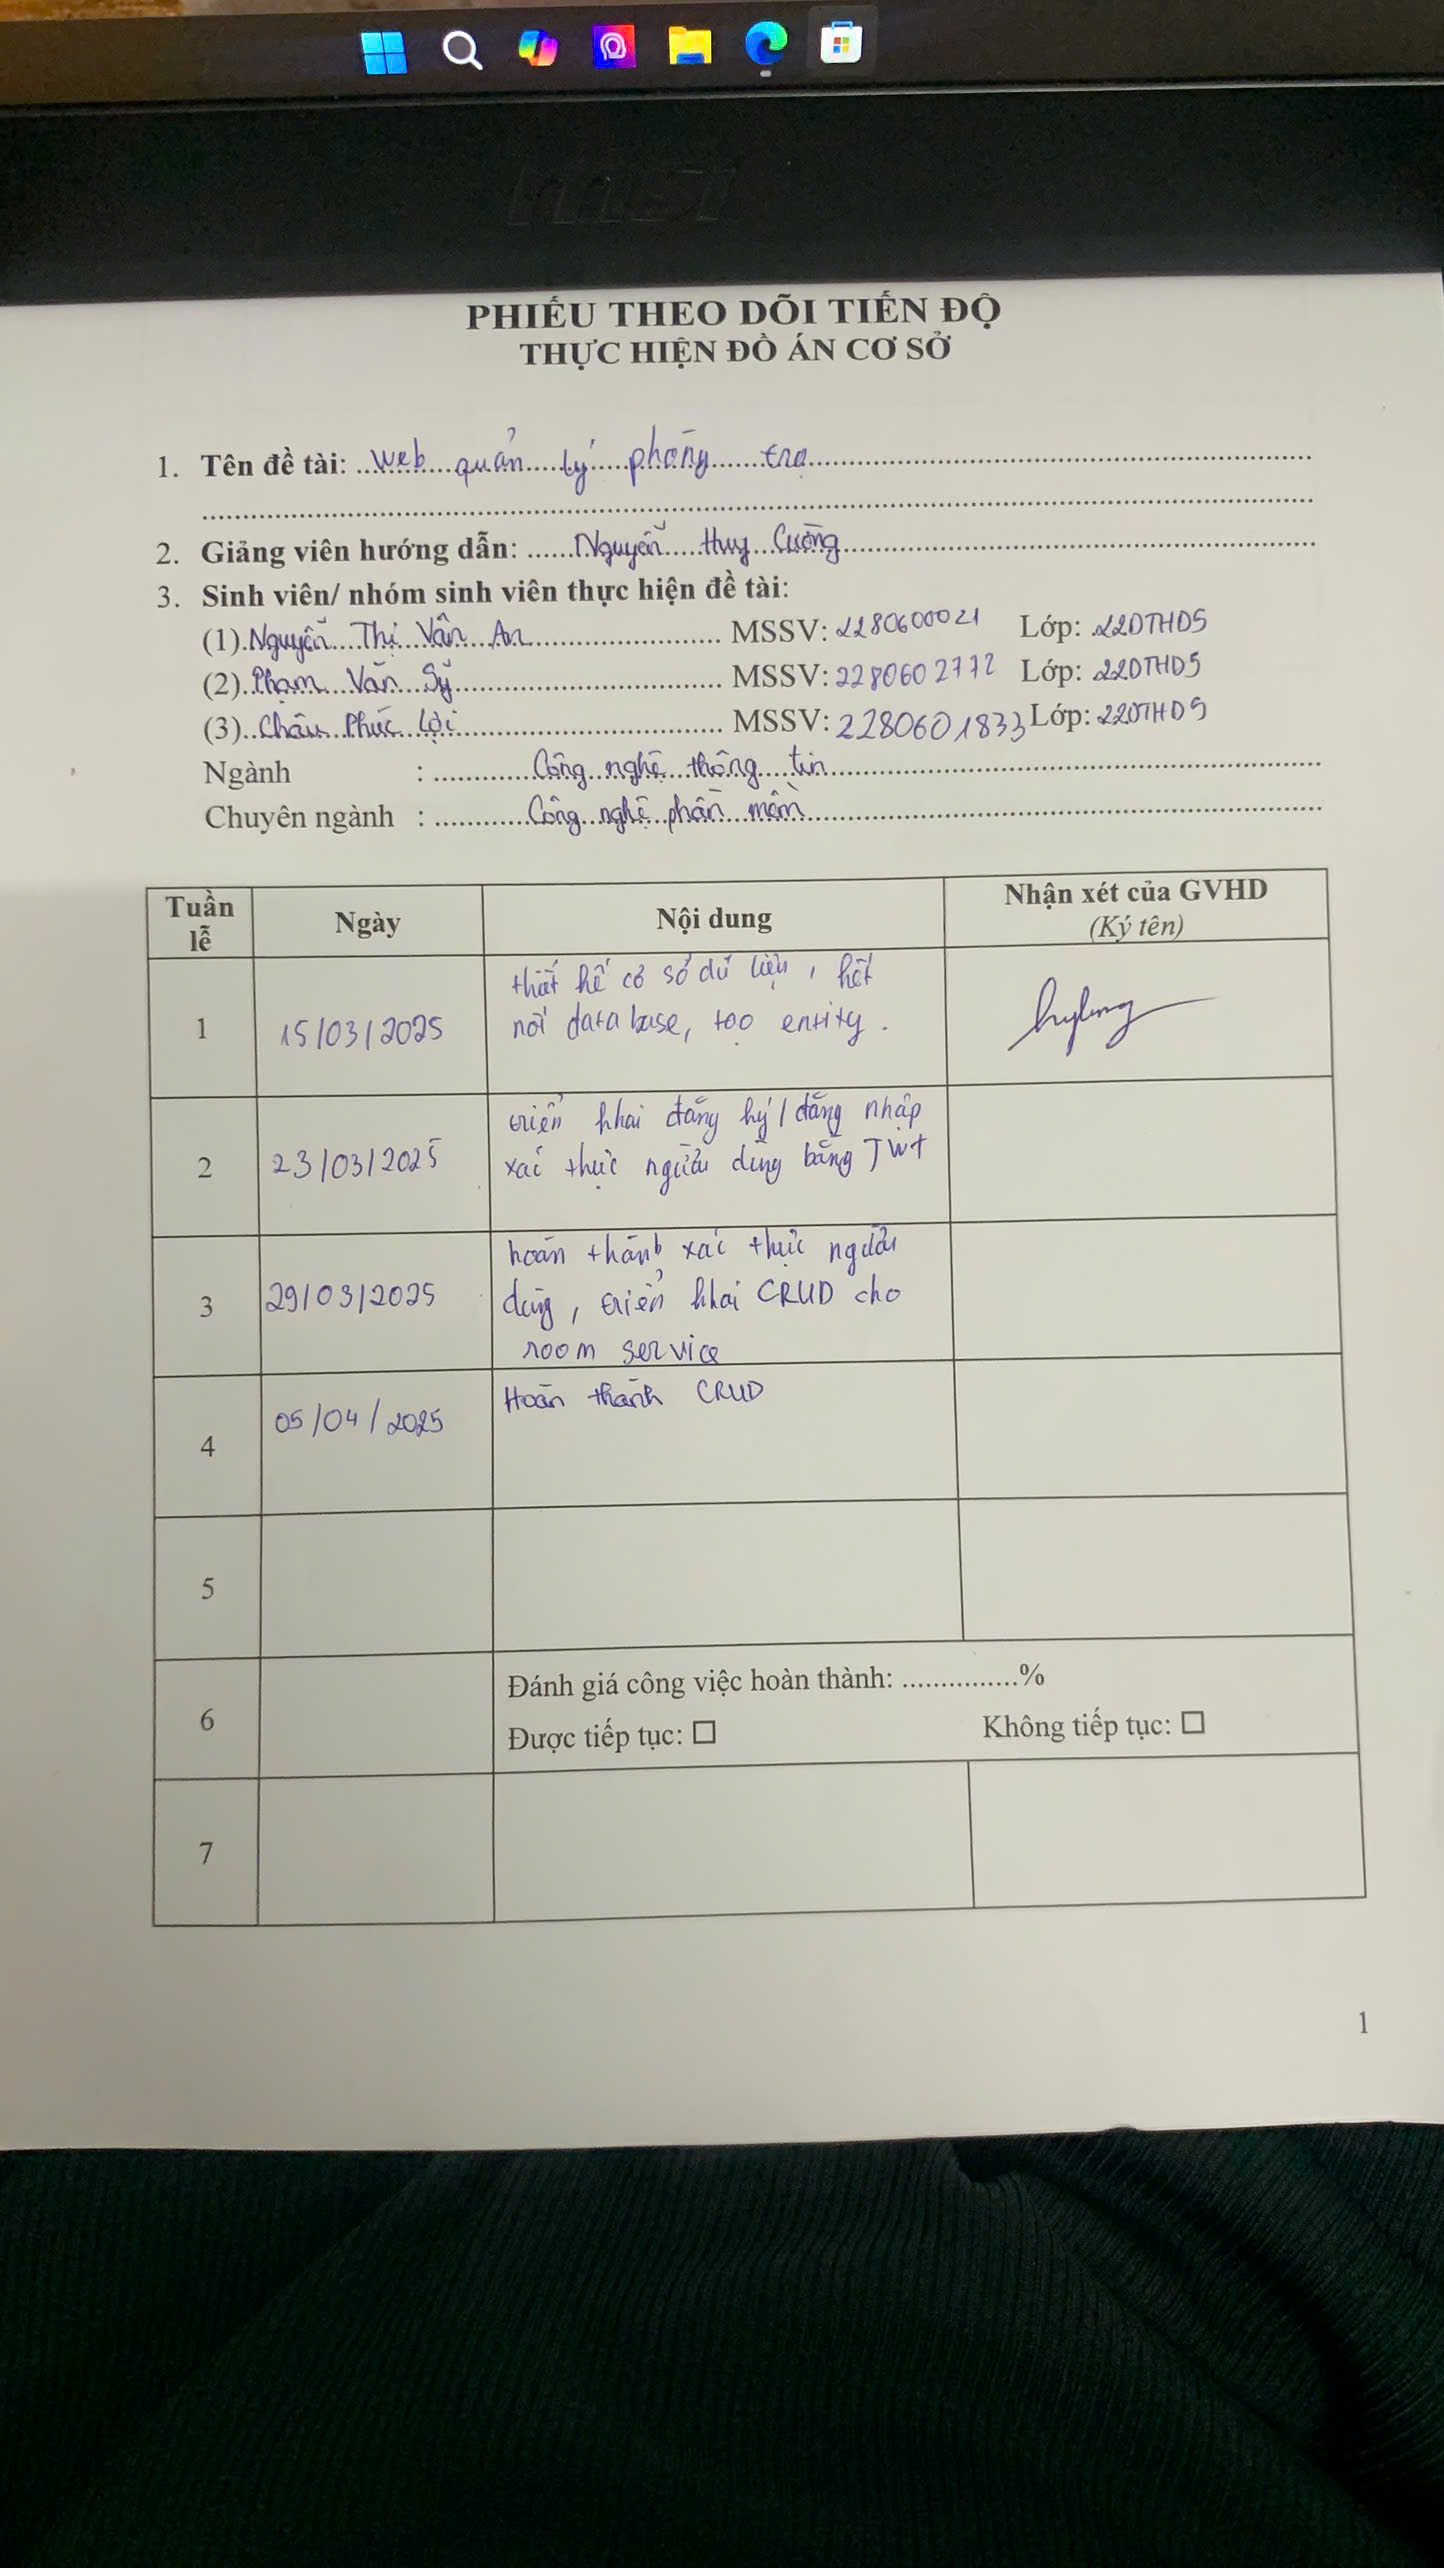 msi
PHIẾU THEO DÕI TIẾN ĐỘ
THỰC HIỆN ĐỒ ÁN CƠ SỞ
1. Tên đề tài: Web quản lý phòng trọ
2. Giảng viên hướng dẫn: Nguyễn Huy Cường
3. Sinh viên/ nhóm sinh viên thực hiện đề tài:
(1) Nguyễn Thị Vân An MSSV: 2280600021 Lớp: 22DTHD5
(2) Phạm Văn Sỹ MSSV: 2280602772 Lớp: 22DTHD5
(3) Châu Phúc Lợi MSSV: 2280601833 Lớp: 22DTHD5
Ngành : Công nghệ thông tin
Chuyên ngành : Công nghệ phần mềm
Tuần lễ Ngày Nội dung Nhận xét của GVHD (Ký tên)
1 15/03/2025 thiết kế cơ sở dữ liệu, kết
nối database, tạo entity.
2 23/03/2025 triển khai đăng ký/đăng nhập
xác thực người dùng bằng JWT
3 29/03/2025 hoàn thành xác thực người
dùng, triển khai CRUD cho
room service
4 05/04/2025 Hoàn thành CRUD
5
6 Đánh giá công việc hoàn thành: ...............%
Được tiếp tục: ☐ Không tiếp tục: ☐
7
1